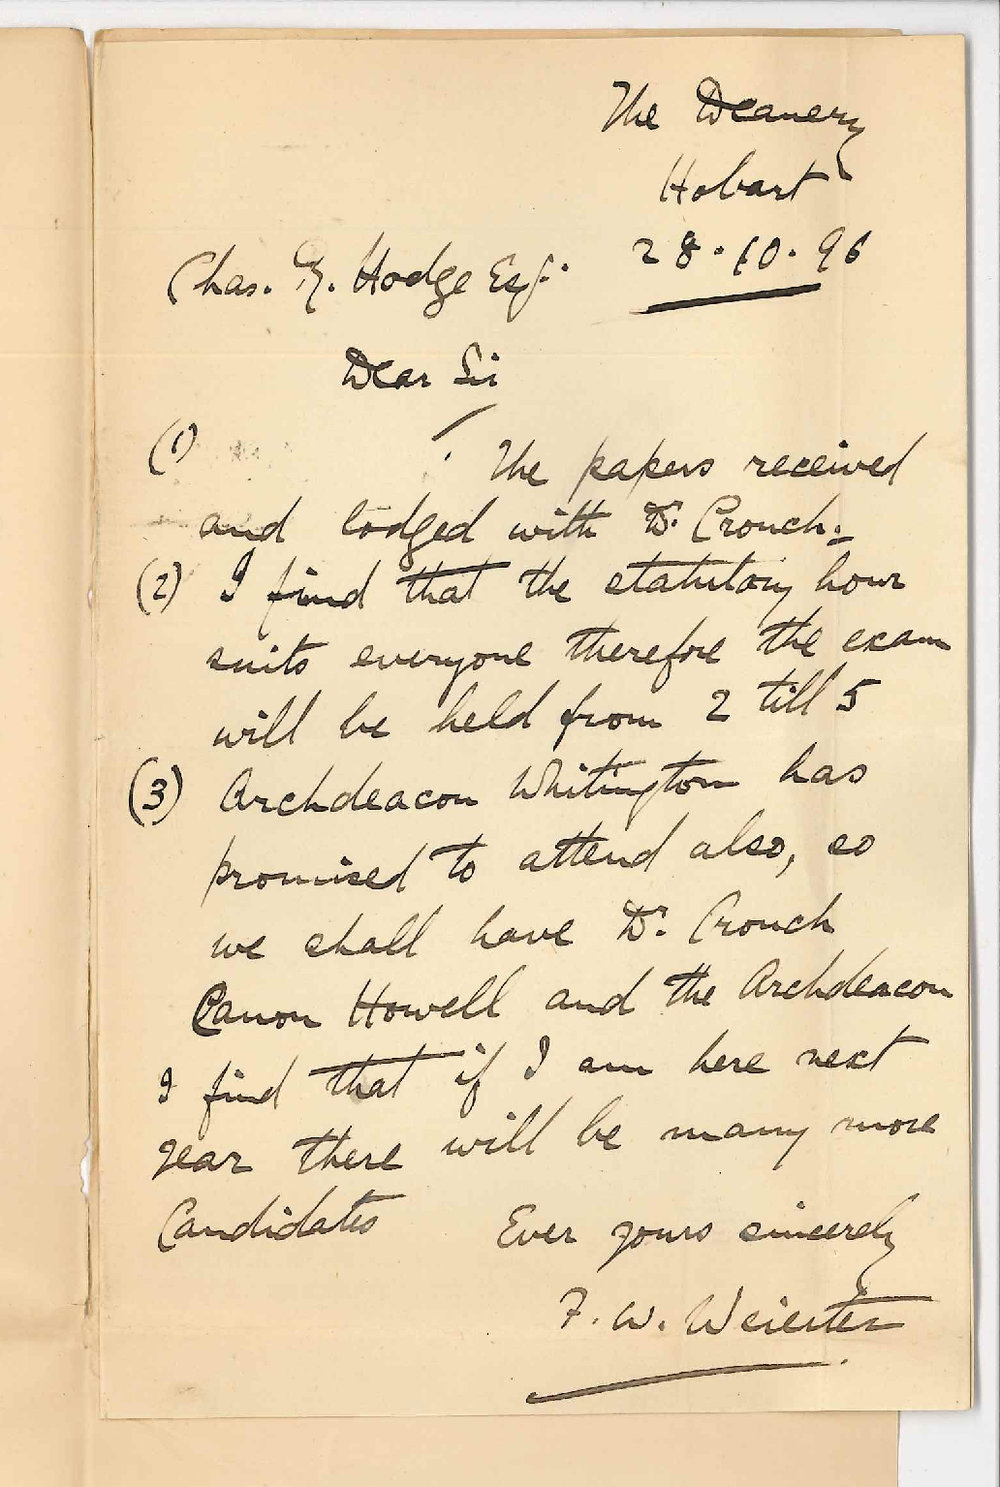 The Deanery
Hobart
28.10.96
Chas. E. Hodge Esq.
Dear Sir
(1) The papers received
and lodged with Dr. Crouch.
(2) I find that the statutory hour
suits everyone therefore the exam
will be held from 2 till 5
(3) Archdeacon Whitington has
promised to attend also, so
we shall have Dr. Crouch
Canon Howell and the Archdeacon
I find that if I am here next
year there will be many more
Candidates
Ever yours sincerely
F. W.